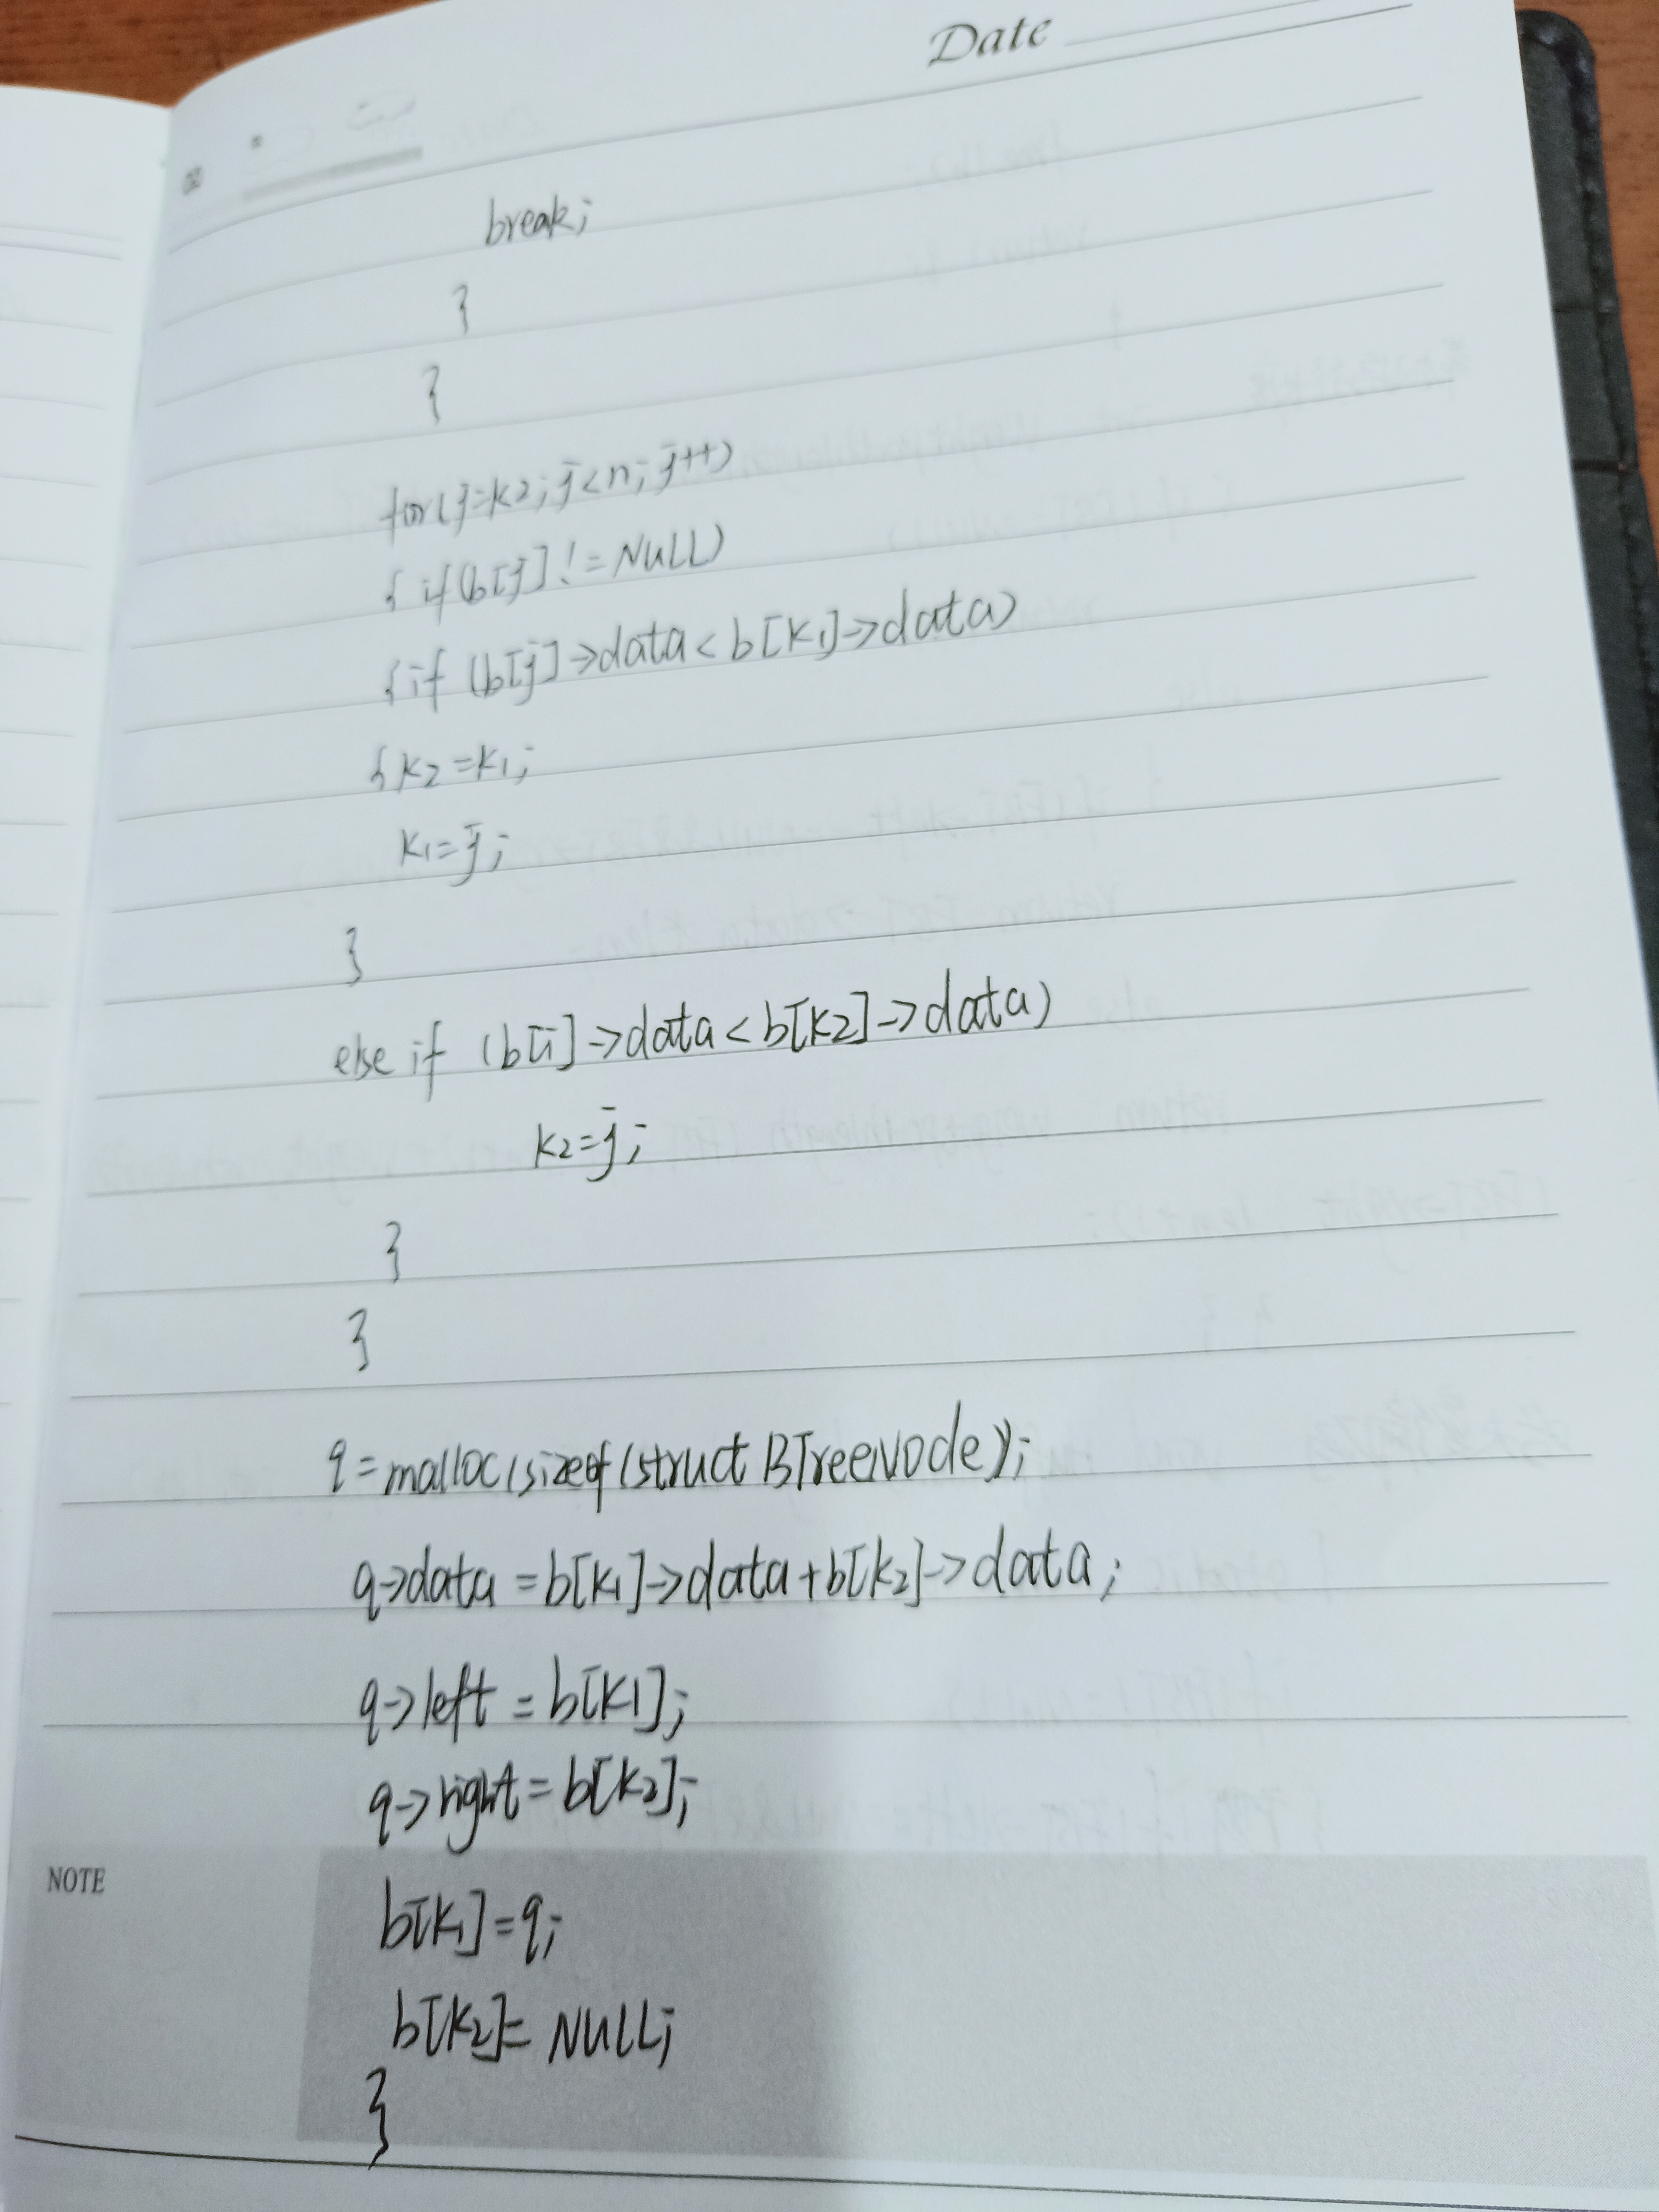 Date
break;
}
}
for(j=k2;j<n;j++)
{ if(b[j]!=NULL)
{if (b[j]->data<b[k1]->data)
{k2=k1;
k1=j;
}
else if (b[i]->data<b[k2]->data)
k2=j;
}
}
q=malloc(sizeof(struct BTreeNode));
q->data=b[k1]->data+b[k2]->data;
q->left=b[k1];
q->right=b[k2];
NOTE
b[k1]=q;
b[k2]=NULL;
}